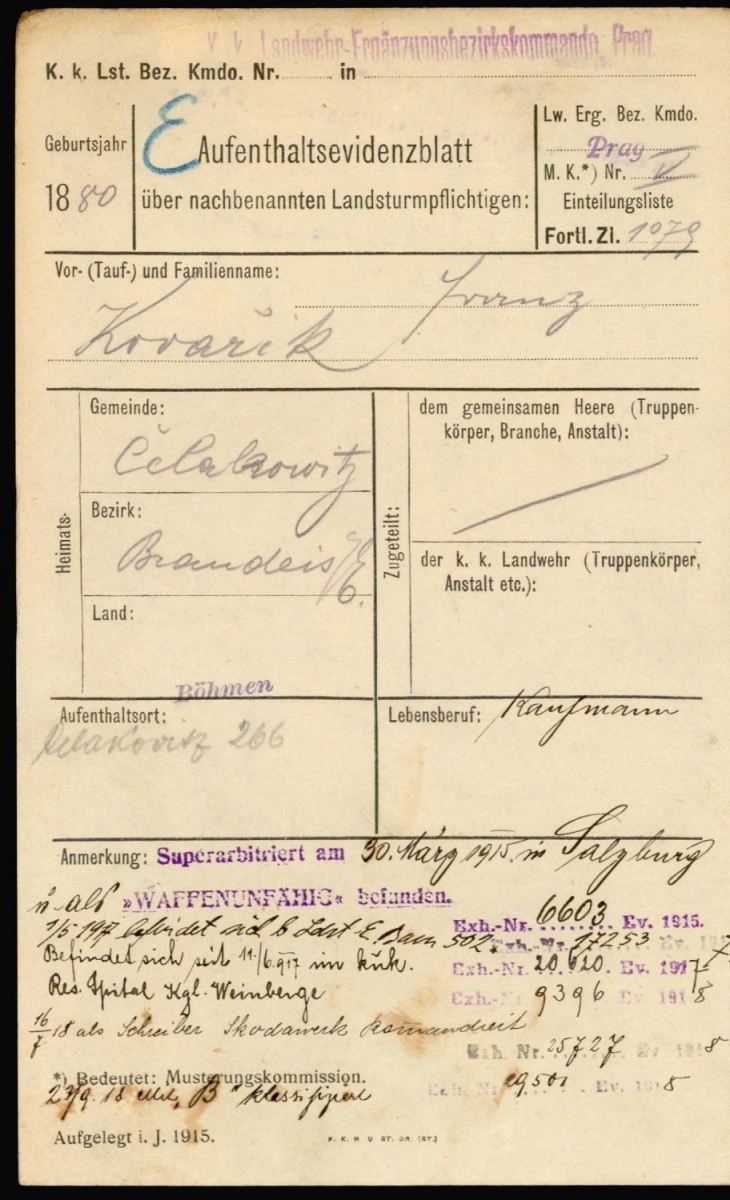 K. k. Landwehr-Ergänzungsbezirkskommando, Prag
K. k. Lst. Bez. Kmdo. Nr. ........ in
Geburtsjahr
1880
E Aufenthaltsevidenzblatt
über nachbenannten Landsturmpflichtigen:
Lw. Erg. Bez. Kmdo.
Prag
M. K.*) Nr. V
Einteilungsliste
Fortl. Zl. 1079
Vor- (Tauf-) und Familienname:
Franz
Kovařík
Heimats-
Gemeinde:
Čelakowitz
Bezirk:
Brandeis a/E.
Land:
Böhmen
Zugeteilt:
dem gemeinsamen Heere (Truppen-
körper, Branche, Anstalt):
der k. k. Landwehr (Truppenkörper,
Anstalt etc.):
Aufenthaltsort:
Čelakovitz 266
Lebensberuf: Kaufmann
Anmerkung: Superarbitriert am 30. März 1915. in Salzburg
u. als »WAFFENUNFÄHIG« befunden.
Exh.-Nr. 6603 Ev. 1915.
1/5 197 sich b Ldst E. Baon 502
Exh.-Nr. 17253 Ev. 197
Befindet sich seit 11./6. 917 im kuk.
Exh.-Nr. 20620 Ev. 1917
Res. Spital Kgl. Weinberge
Exh.-Nr. 9396 Ev. 1918
16/7 18 als Schreiber Skodawerk kommandiert
Exh. Nr. 25727 Ev. 1918
*) Bedeutet: Musterungskommission.
23/9. 18 „B" klassifiziert
Exh.-Nr. 29501 Ev. 1918
Aufgelegt i. J. 1915.
F. K. H U ST. DR. (ST.)